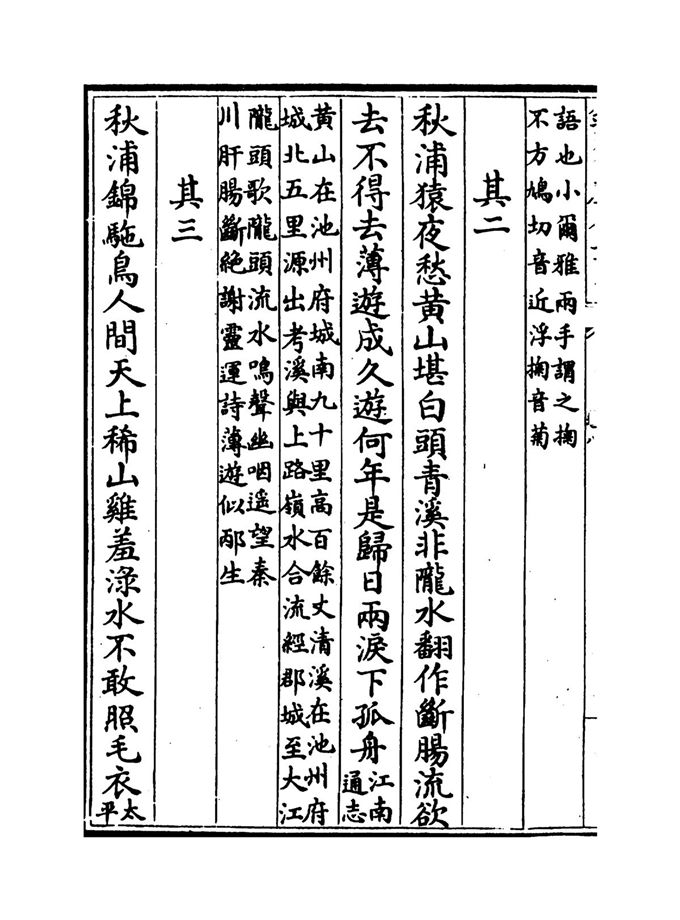 語也小爾雅兩手謂之掬
不方鳩切音近浮掬音菊
其二
秋浦猿夜愁黄山堪白頭青溪非隴水翻作斷腸流欲
去不得去薄遊成久遊何年是歸日雨淚下孤舟江南
通志
黄山在池州府城南九十里高百餘丈清溪在池州府
城北五里源出考溪與上路嶺水合流經郡城至大江
隴頭歌隴頭流水嗚聲幽咽遥望秦
川肝腸斷絶謝靈運詩薄遊似邴生
其三
秋浦錦駞鳥人間天上稀山雞羞渌水不敢照毛衣太
平